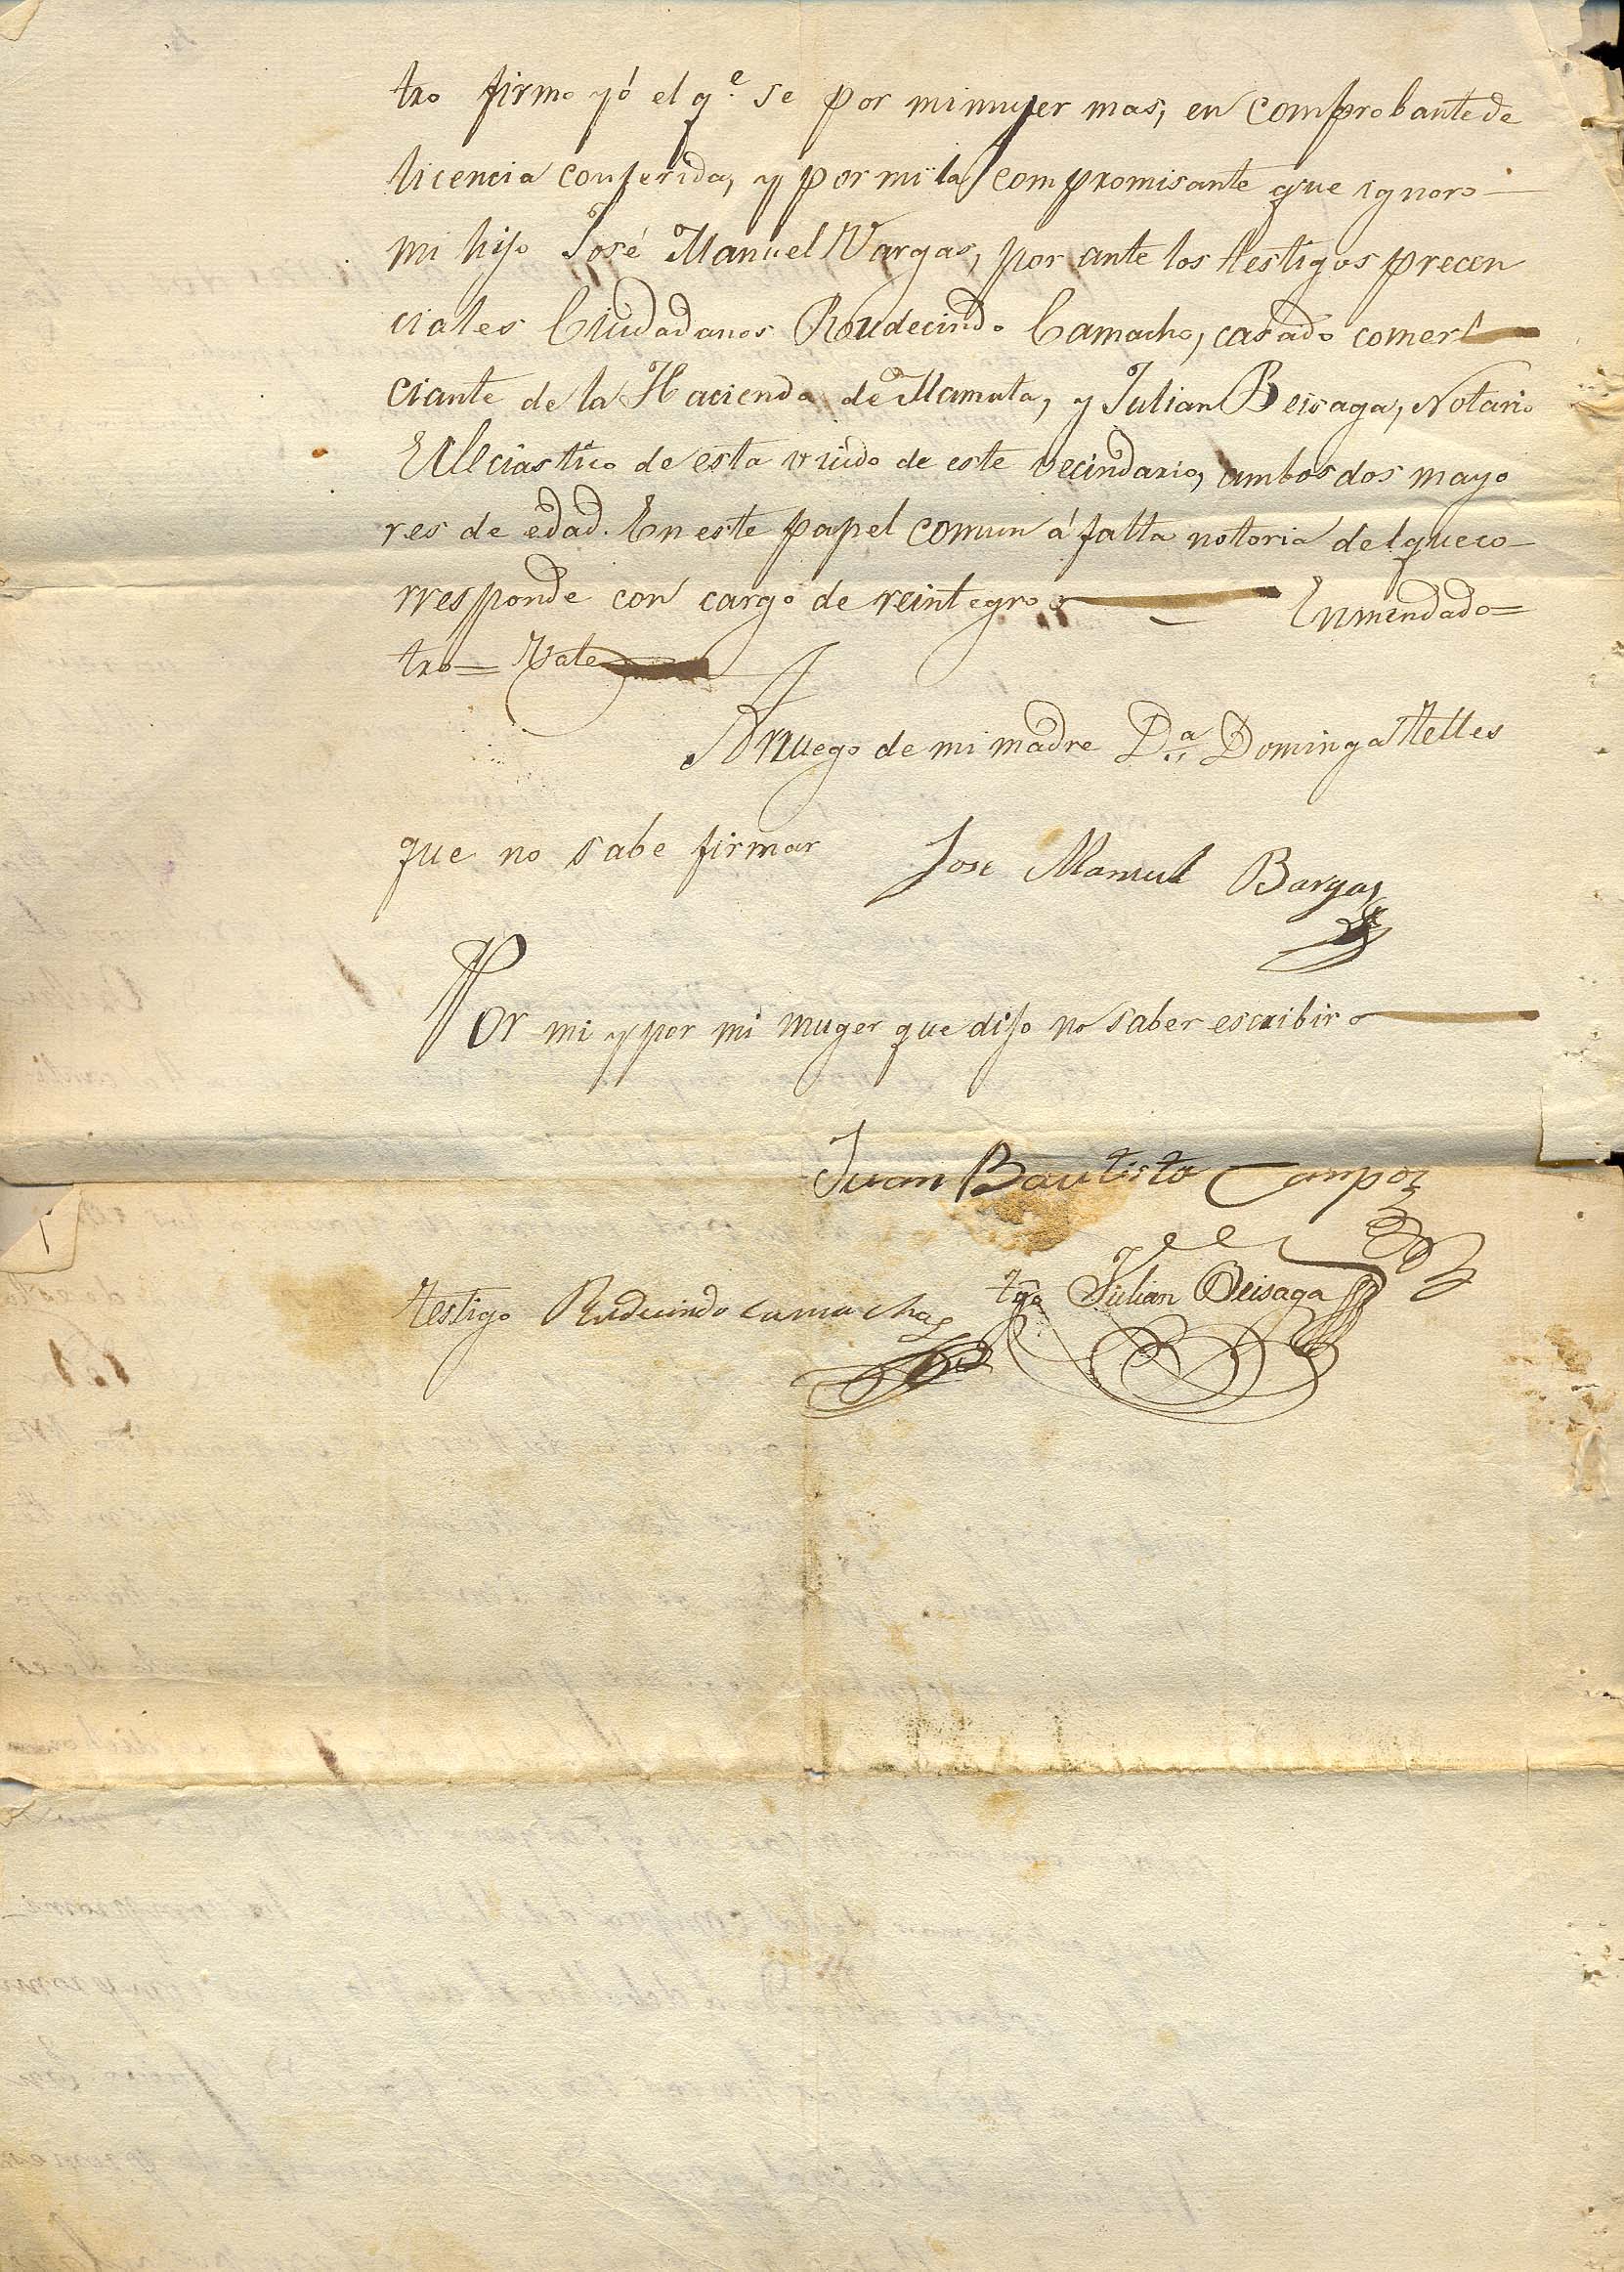 tro firmo yó el q.e se por mi mujer mas, en comprobante de
licencia conferida, y por mi la compromisante que ignoro
mi hijo José Manuel Vargas, por ante los testigos precen
ciales Ciudadanos Roudecindo Camacho, casado comer
ciante de la Hacienda de Mamuta, y Julian Beisaga, Notario
Ecleciastico de esta viudo de este vecindario, ambos dos mayo
res de edad. En este papel comun á falta notoria del que co
rresponde con cargo de reintegro Enmendado=
tro= Vale
A rruego de mi madre D.a Dominga Telles
que no sabe firmar Jose Manuel Bargas
Por mi y por mi muger que dijo no saber escribir
Juan Bautista Campos
testigo Rudecindo Camacho
tgo Julian Beisaga